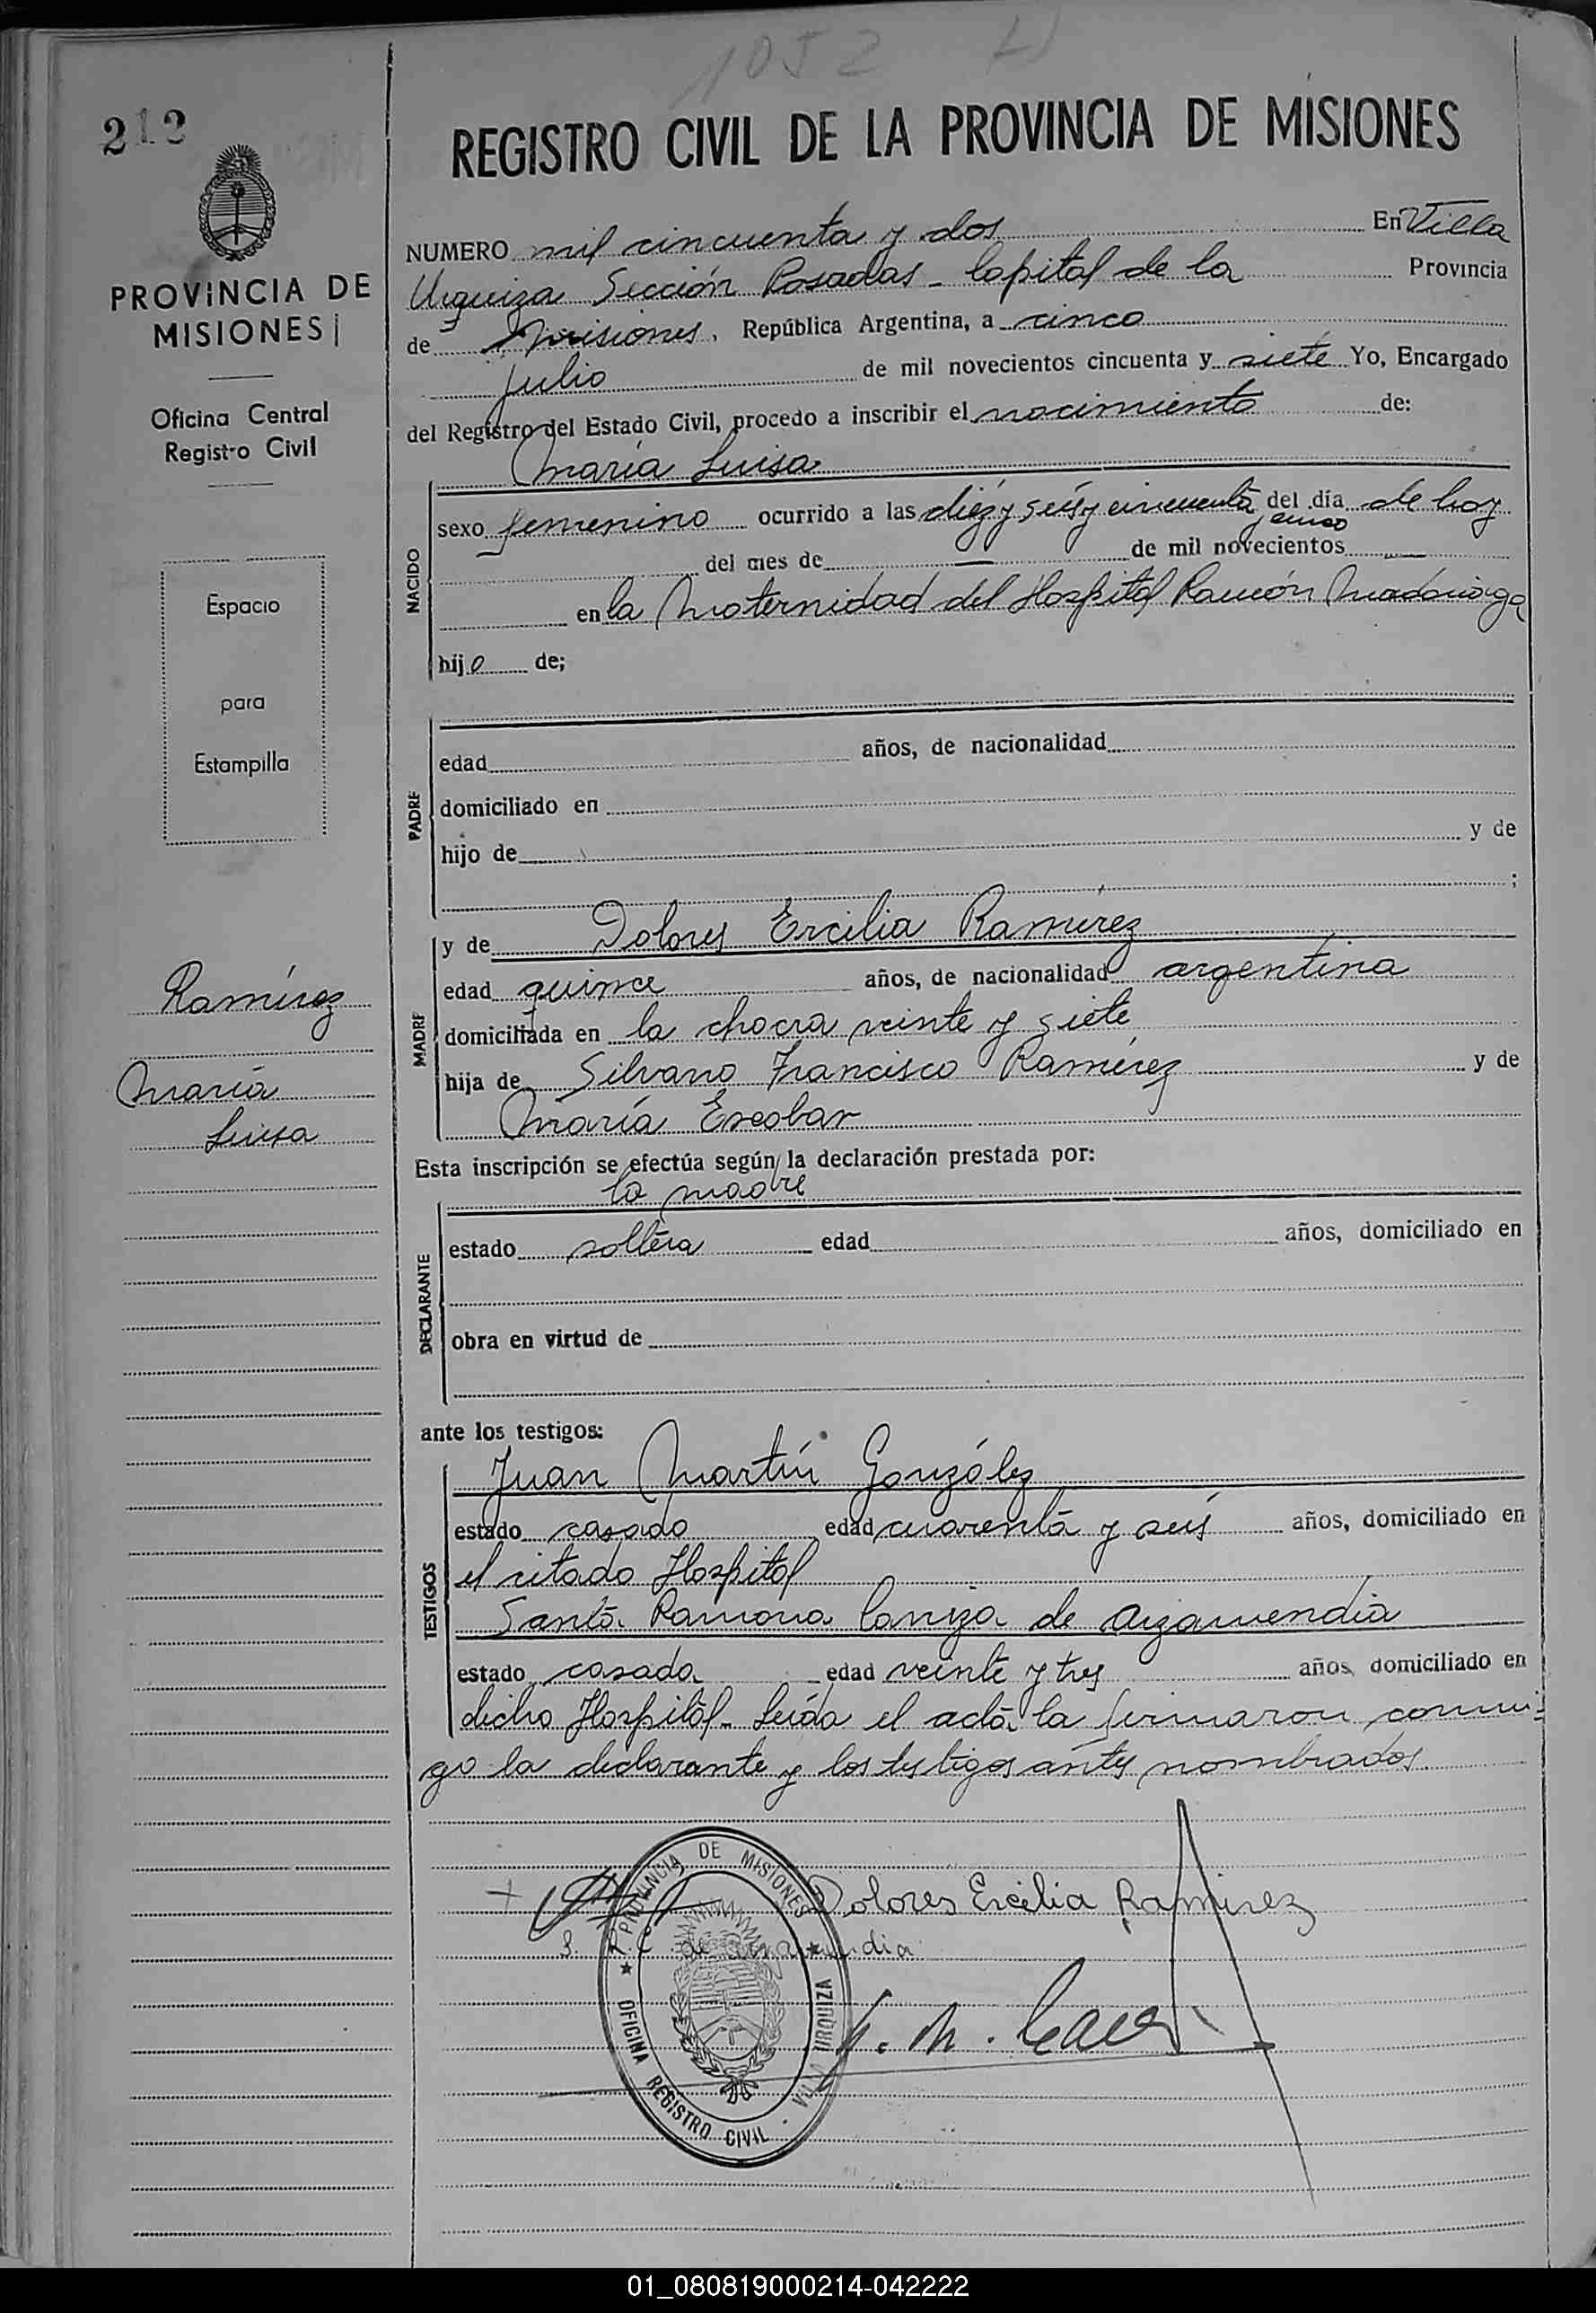 1052
212
REGISTRO CIVIL DE LA PROVINCIA DE MISIONES
PROVINCIA DE
MISIONES
Oficina Central
Registro Civil
Espacio
para
Estampilla
Ramírez
María
Luisa
NUMERO mil cincuenta y dos En Villa
Urquiza Sección Posadas - Capital de la Provincia
de Misiones, República Argentina, a cinco
julio de mil novecientos cincuenta y siete Yo, Encargado
del Registro del Estado Civil, procedo a inscribir el nacimiento de:
María Luisa
NACIDO
sexo femenino ocurrido a las diez y seis y cincuenta y cinco del día de hoy
del mes de — de mil novecientos —
en la Maternidad del Hospital Ramón Madariaga
hij a de;
PADRE
edad años, de nacionalidad
domiciliado en
hijo de y de
;
MADRE
y de Dolores Ercilia Ramírez
edad quince años, de nacionalidad argentina
domiciliada en la chacra veinte y siete
hija de Silvano Francisco Ramírez y de
María Escobar
Esta inscripción se efectúa según la declaración prestada por:
la madre
DECLARANTE
estado soltera edad años, domiciliado en
obra en virtud de
ante los testigos:
Juan Martín González
TESTIGOS
estado casado edad cuarenta y seis años, domiciliado en
el citado Hospital
Santa Ramona Caniza de Arizamendia
estado casada edad veinte y tres años, domiciliado en
dicho Hospital - Leída el acta la firmaron conmi-
go la declarante y los testigos antes nombrados.
Dolores Ercilia Ramirez
PROVINCIA DE MISIONES
OFICINA REGISTRO CIVIL - VILLA URQUIZA
01_080819000214-042222